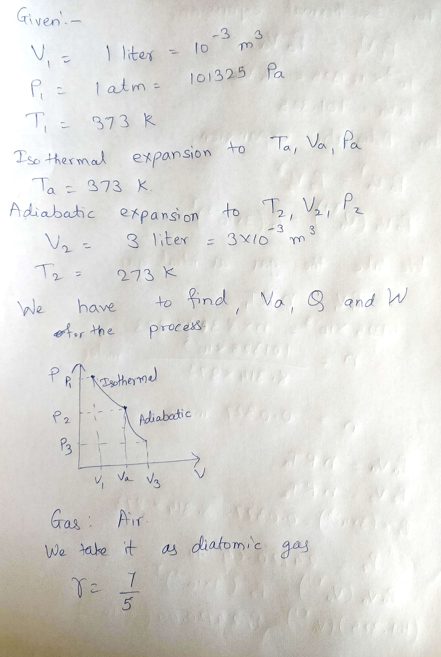 Given:-
V₁ = 1 liter = 10⁻³ m³
P₁ = 1 atm = 101325 Pa
T₁ = 373 K
Isothermal expansion to Ta, Va, Pa
Ta = 373 K.
Adiabatic expansion to T₂, V₂, P₂
V₂ = 3 liter = 3×10⁻³ m³
T₂ = 273 K
We have to find, Va, Q and W
for the process.
P
P₁ Isothermal
P₂ Adiabatic
P₃
V₁ Va V₃ V
Gas: Air.
We take it as diatomic gas
γ = 7/5